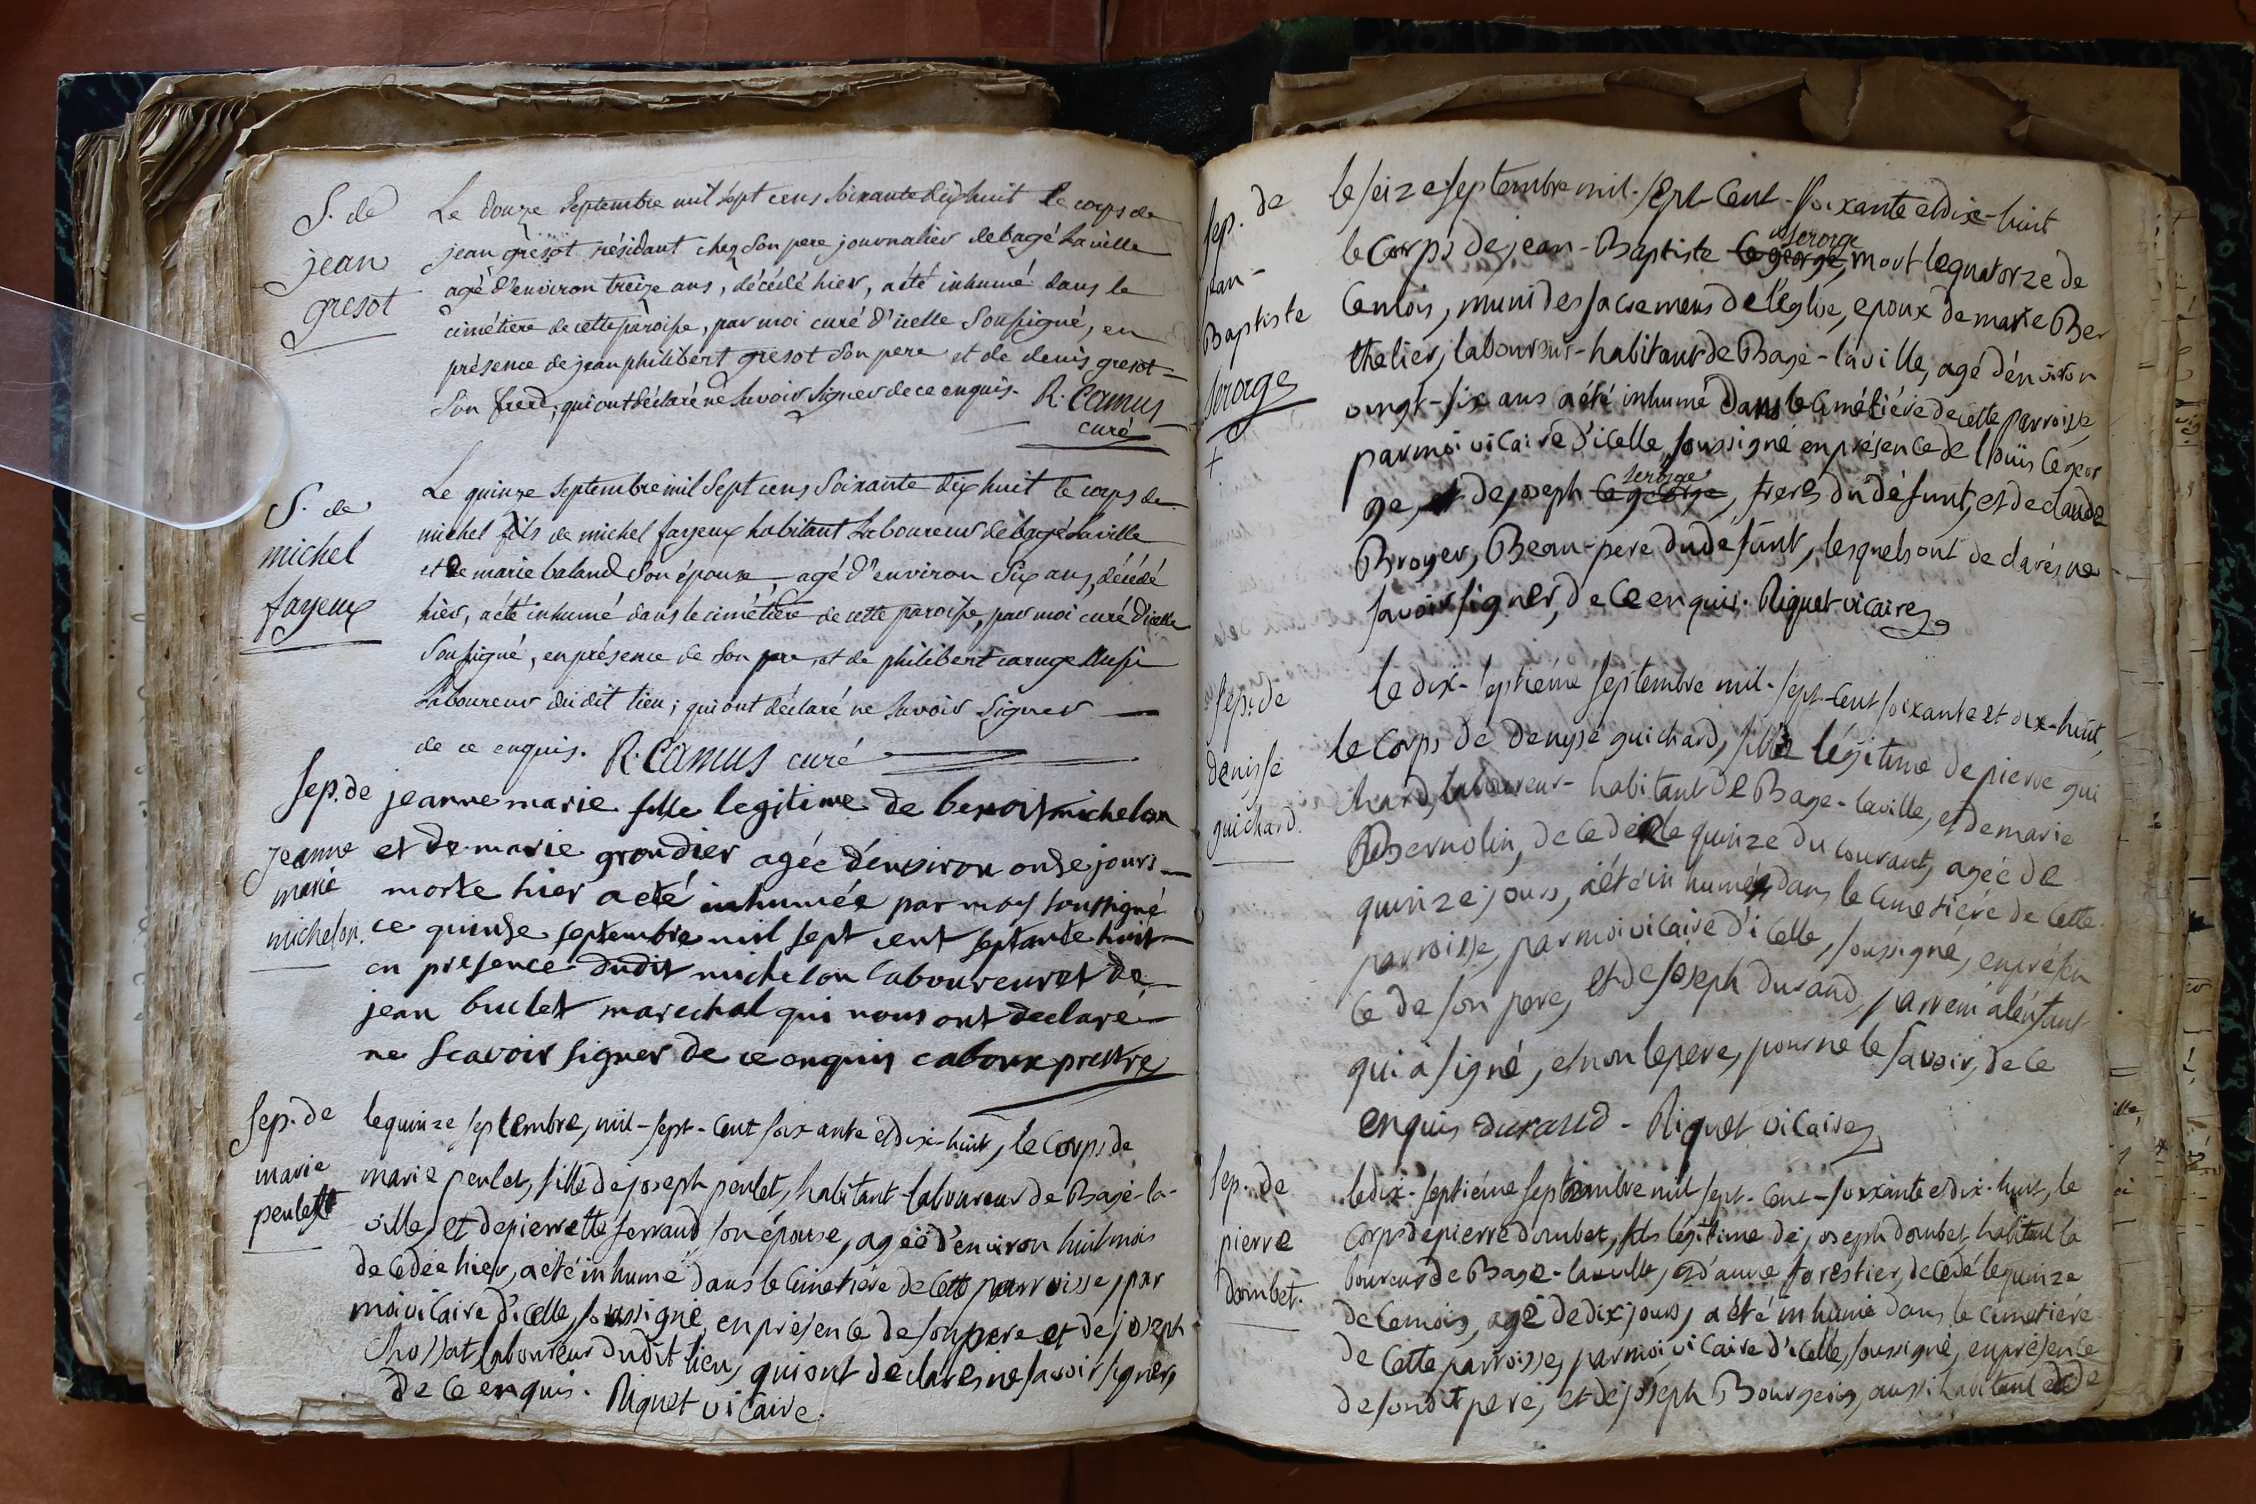 S. de
jean
gresot
Le douze Septembre mil sept cens soixante dix huit le corps de
jean gresot résidant chez son pere journalier de bagé la ville
agé d'environ treize ans, décédé hier, a été inhumé dans le
cimétiere de cette paroisse, par moi curé d'icelle soussigné, en
présence de jean philibert gresot son pere et de denis gresot
son frere, qui ont déclaré ne savoir signer de ce enquis. R. Camus
curé
S. de
michel
fayeux
Le quinze septembre mil sept cens soixante dix huit le corps de
michel fils de michel fayeux habitant Laboureur de bagé la ville
et de marie baland son épouse, agé d'environ six ans, décédé
hier, a été inhumé dans le cimétiere de cette paroisse, par moi curé d'icelle
soussigné, en présence de son pere et de philibert caruge aussi
Laboureur du dit lieu; qui ont déclaré ne savoir signer
de ce enquis. R. Camus curé
sep. de
jeanne
marie
michelon.
jeanne marie fille legitime de benoit michelon
et de marie grondier agée d'environ onse jours
morte hier a eté inhumée par moy soussigné
ce quinse septembre mil sept cent septante huit
en presence dudit michelon laboureur et de
jean buclet marechal qui nous ont declaré
ne scavoir signer de ce enquis caboux prestre
sep. de
marie
peulet
le quinze septembre, mil-sept-cent soixante et dix-huit, le corps de
marie peulet, fille de joseph peulet, habitant-laboureur de Bagé-la-
ville, et de pierrette ferraud son épouse, agée d'environ huit mois
decedée hier, a été inhumé dans le cimetiére de cette parroisse, par
moi vicaire d'icelle, soussigné, en présence de son pere et de joseph
chossat laboureur dudit lieu, qui ont declarés ne savoir signer,
de ce enquis. Riquet vicaire.
sep. de
jean-
Baptiste
seroge
+
le seize septembre mil-sept-cent-soixante et dix-huit
seroge
le corps de jean-Baptiste le george, mort le quatorze de
ce mois, muni des sacremens de l'églse, epoux de marie Ber
thelier, laboureur-habitant de Bagé-la ville, agé d'environ
vingt-six ans a été inhumé dans le cimétiére de cette parroisse,
par moi vicaire d'icelle, soussigné en présence de loüis le geor
seroge
ge, et de joseph le george, freres du défunt, et de claude
Broyer, Beau-pere du défunt, lesquels ont declarés ne
savoir signer, de ce enquis. Riquet vicaire
sep. de
denisse
guichard.
le dix-septiéme septembre mil-sept-cent soixante et dix-huit,
le corps de denyse guichard, fille légitime de pierre gui
chard, laboureur-habitant de Bage-la ville, et de marie
Bernolin, decedée le quinze du courant, agée de
quinze jours, a été inhumée dans le cimetiére de cette
parroisse, par moi vicaire d'icelle, soussigné, en présen
ce de son pere, et de joseph durand, parrein à l'énfant
qui a signé, et non le pere, pour ne le savoir, de ce
enquis durand - Riquet vicaire
sep. de
pierre
dombet.
le dix-septiéme septembre mil sept-cent-soixante et dix-huit, le
corps de pierre dombet, fils légitime de joseph dombet habitant la
boureur de Bagé-la ville, et d'anne forestier, decedé le quinze
de ce mois, agé de dix jours, a été inhumé dans le cimetiére
de cette parroisse, par moi vicaire d'icelle, soussigné, en présence
de son dit pere, et de joseph Bourgeois, aussi habitant de